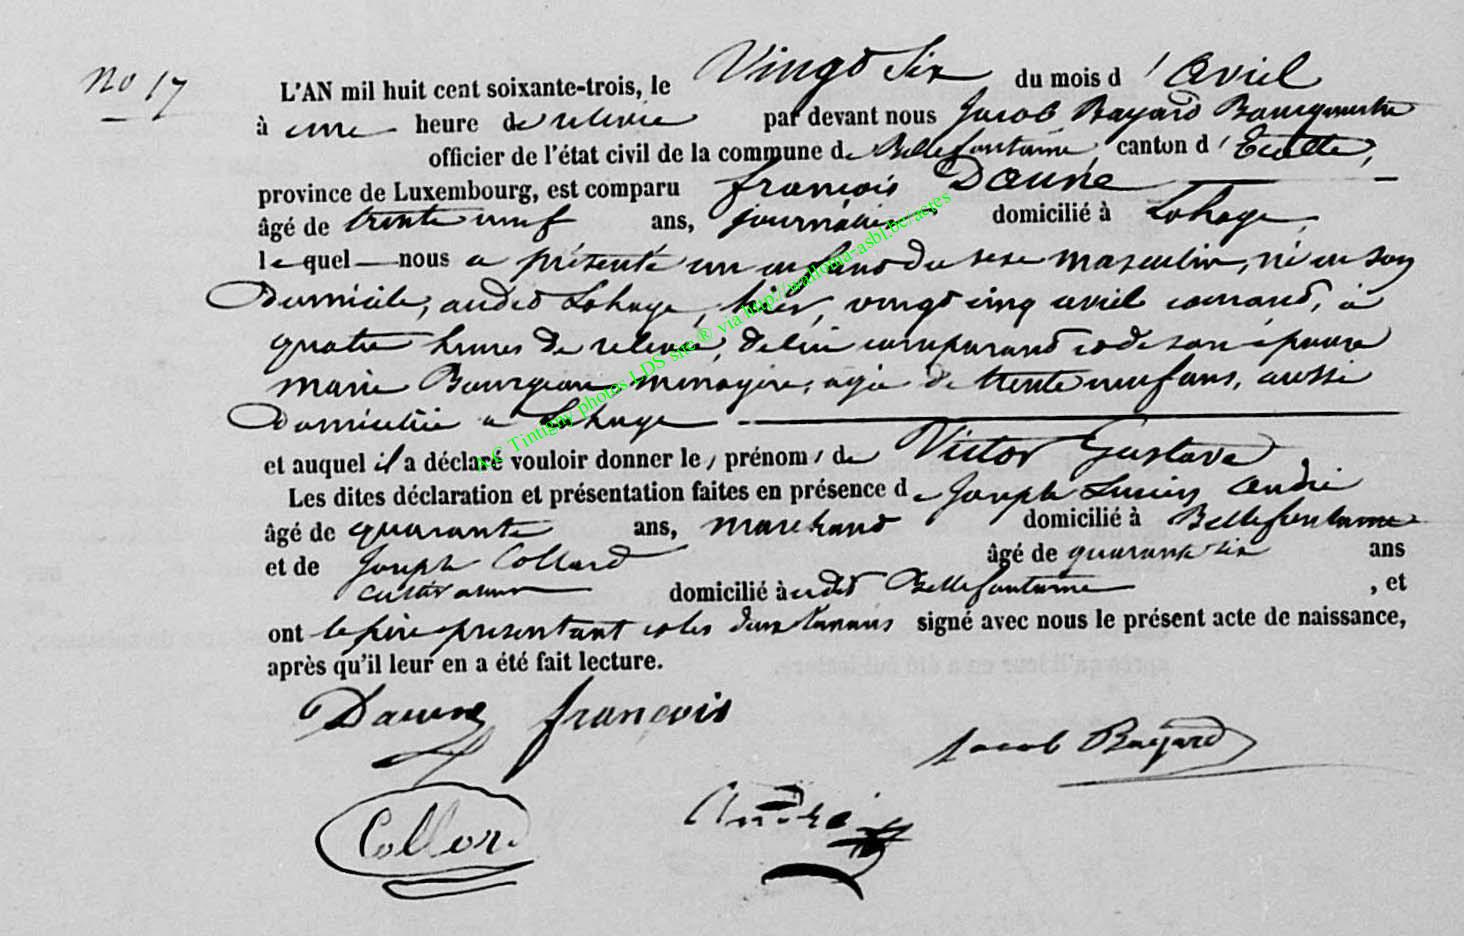 No 17
L'AN mil huit cent soixante-trois, le Vingt Six du mois d'Avril
à une heure de relevée par devant nous Jacob Bayard Bourgmestre
officier de l'état civil de la commune de Bellefontaine, canton d'Etalle,
province de Luxembourg, est comparu françois Daune
âgé de trente neuf ans, journalier domicilié à Lahage,
lequel nous a présenté un enfant du sexe masculin, né en son
Domicile, audit Lahage, hier, vingt cinq avril courant, à
quatre heures de relevée, de lui comparant et de son épouse
marie Bourgeon menagère, agée de trente neuf ans, aussi
Domiciliée a Lahage
et auquel il a déclaré vouloir donner le, prénom, de Victor Gustave
Les dites déclaration et présentation faites en présence de Joseph Lucien André
âgé de quarante ans, marchand domicilié à Bellefontaine
et de Joseph Collard âgé de quarante six ans
cultivateur domicilié à udit Bellefontaine, et
ont le père présentant et les deux témoins signé avec nous le présent acte de naissance,
après qu'il leur en a été fait lecture.
Daune françois
Jacob Bayard
Collard
André
AC Tintigny photos LDS site ® via http://wallonia-asbl.be/actes